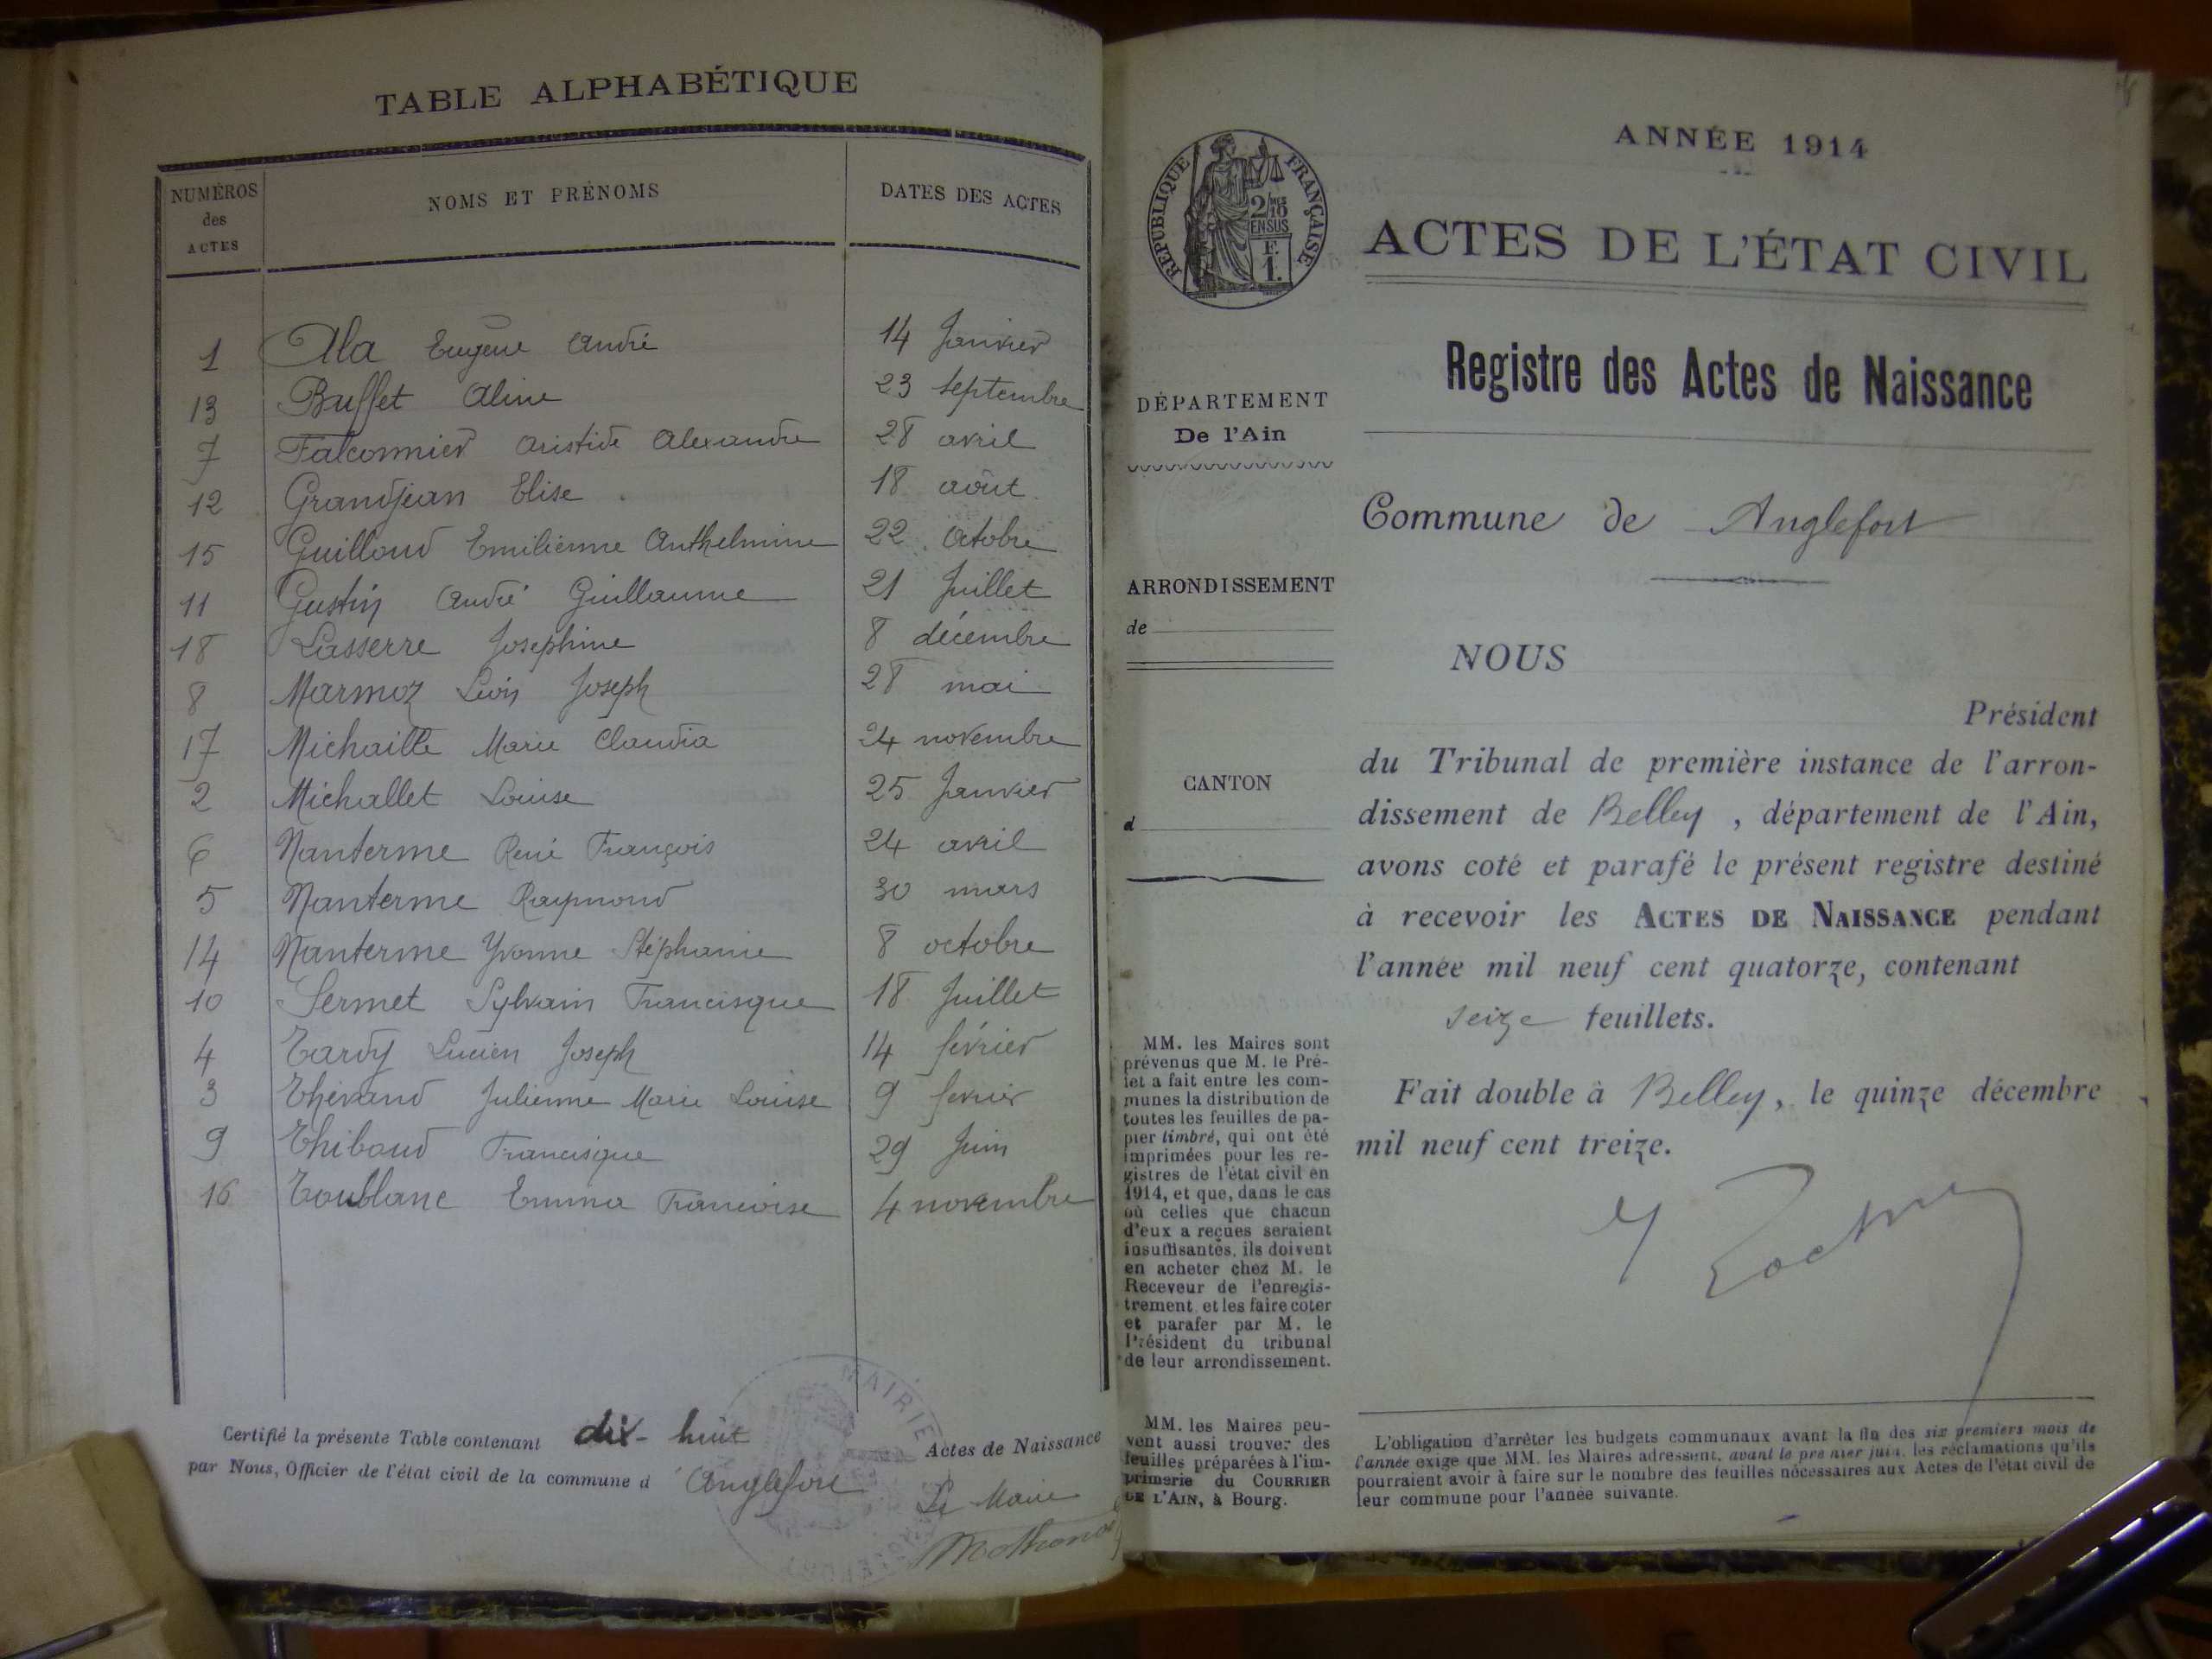 TABLE ALPHABÉTIQUE
NUMÉROS des ACTES
NOMS ET PRÉNOMS
DATES DES ACTES
1 Ala Eugène André 14 Janvier
13 Buffet Aline 23 septembre
7 Falconnier Aristide Alexandre 28 avril
12 Grandjean Elise 18 août
15 Guilloud Emilienne Anthelmine 22 Octobre
11 Gustin André Guillaume 21 Juillet
18 Lasserre Josephine 8 décembre
8 Marmoz Léon Joseph 28 mai
17 Michaille Marie Claudia 24 novembre
2 Michallet Louise 25 Janvier
6 Nanterme René François 24 avril
5 Nanterme Raymond 30 mars
14 Nanterme Yvonne Stéphanie 8 octobre
10 Sermet Sylvain Francisque 18 Juillet
4 Tardy Lucien Joseph 14 février
3 Thévand Julienne Marie Louise 9 fevrier
9 Thiboud Francisque 29 Juin
16 Toublanc Emma Francoise 4 novembre
Certifié la présente Table contenant dix-huit Actes de Naissance
par Nous, Officier de l'état civil de la commune d'Anglefort
Le Maire
MAIRIE
ANNÉE 1914
RÉPUBLIQUE FRANÇAISE
2/10
MES
EN SUS
F.
1.
ACTES DE L'ÉTAT CIVIL
Registre des Actes de Naissance
DÉPARTEMENT
De l'Ain
Commune de Anglefort
ARRONDISSEMENT
de
CANTON
d
NOUS
Président
du Tribunal de première instance de l'arron-
dissement de Belley, département de l'Ain,
avons coté et parafé le présent registre destiné
à recevoir les ACTES DE NAISSANCE pendant
l'année mil neuf cent quatorze, contenant
seize feuillets.
Fait double à Belley, le quinze décembre
mil neuf cent treize.
MM. les Maires sont
prévenus que M. le Pré-
fet a fait entre les com-
munes la distribution de
toutes les feuilles de pa-
pier timbré, qui ont été
imprimées pour les re-
gistres de l'état civil en
1914, et que, dans le cas
où celles que chacun
d'eux a reçues seraient
insuffisantes, ils doivent
en acheter chez M. le
Receveur de l'enregis-
trement et les faire coter
et parafer par M. le
Président du tribunal
de leur arrondissement.
MM. les Maires peu-
vent aussi trouver des
feuilles préparées à l'im-
primerie du COURRIER
DE L'AIN, à Bourg.
L'obligation d'arrêter les budgets communaux avant la fin des six premiers mois de
l'année exige que MM. les Maires adressent, avant le premier juin, les réclamations qu'ils
pourraient avoir à faire sur le nombre des feuilles nécessaires aux Actes de l'état civil de
leur commune pour l'année suivante.